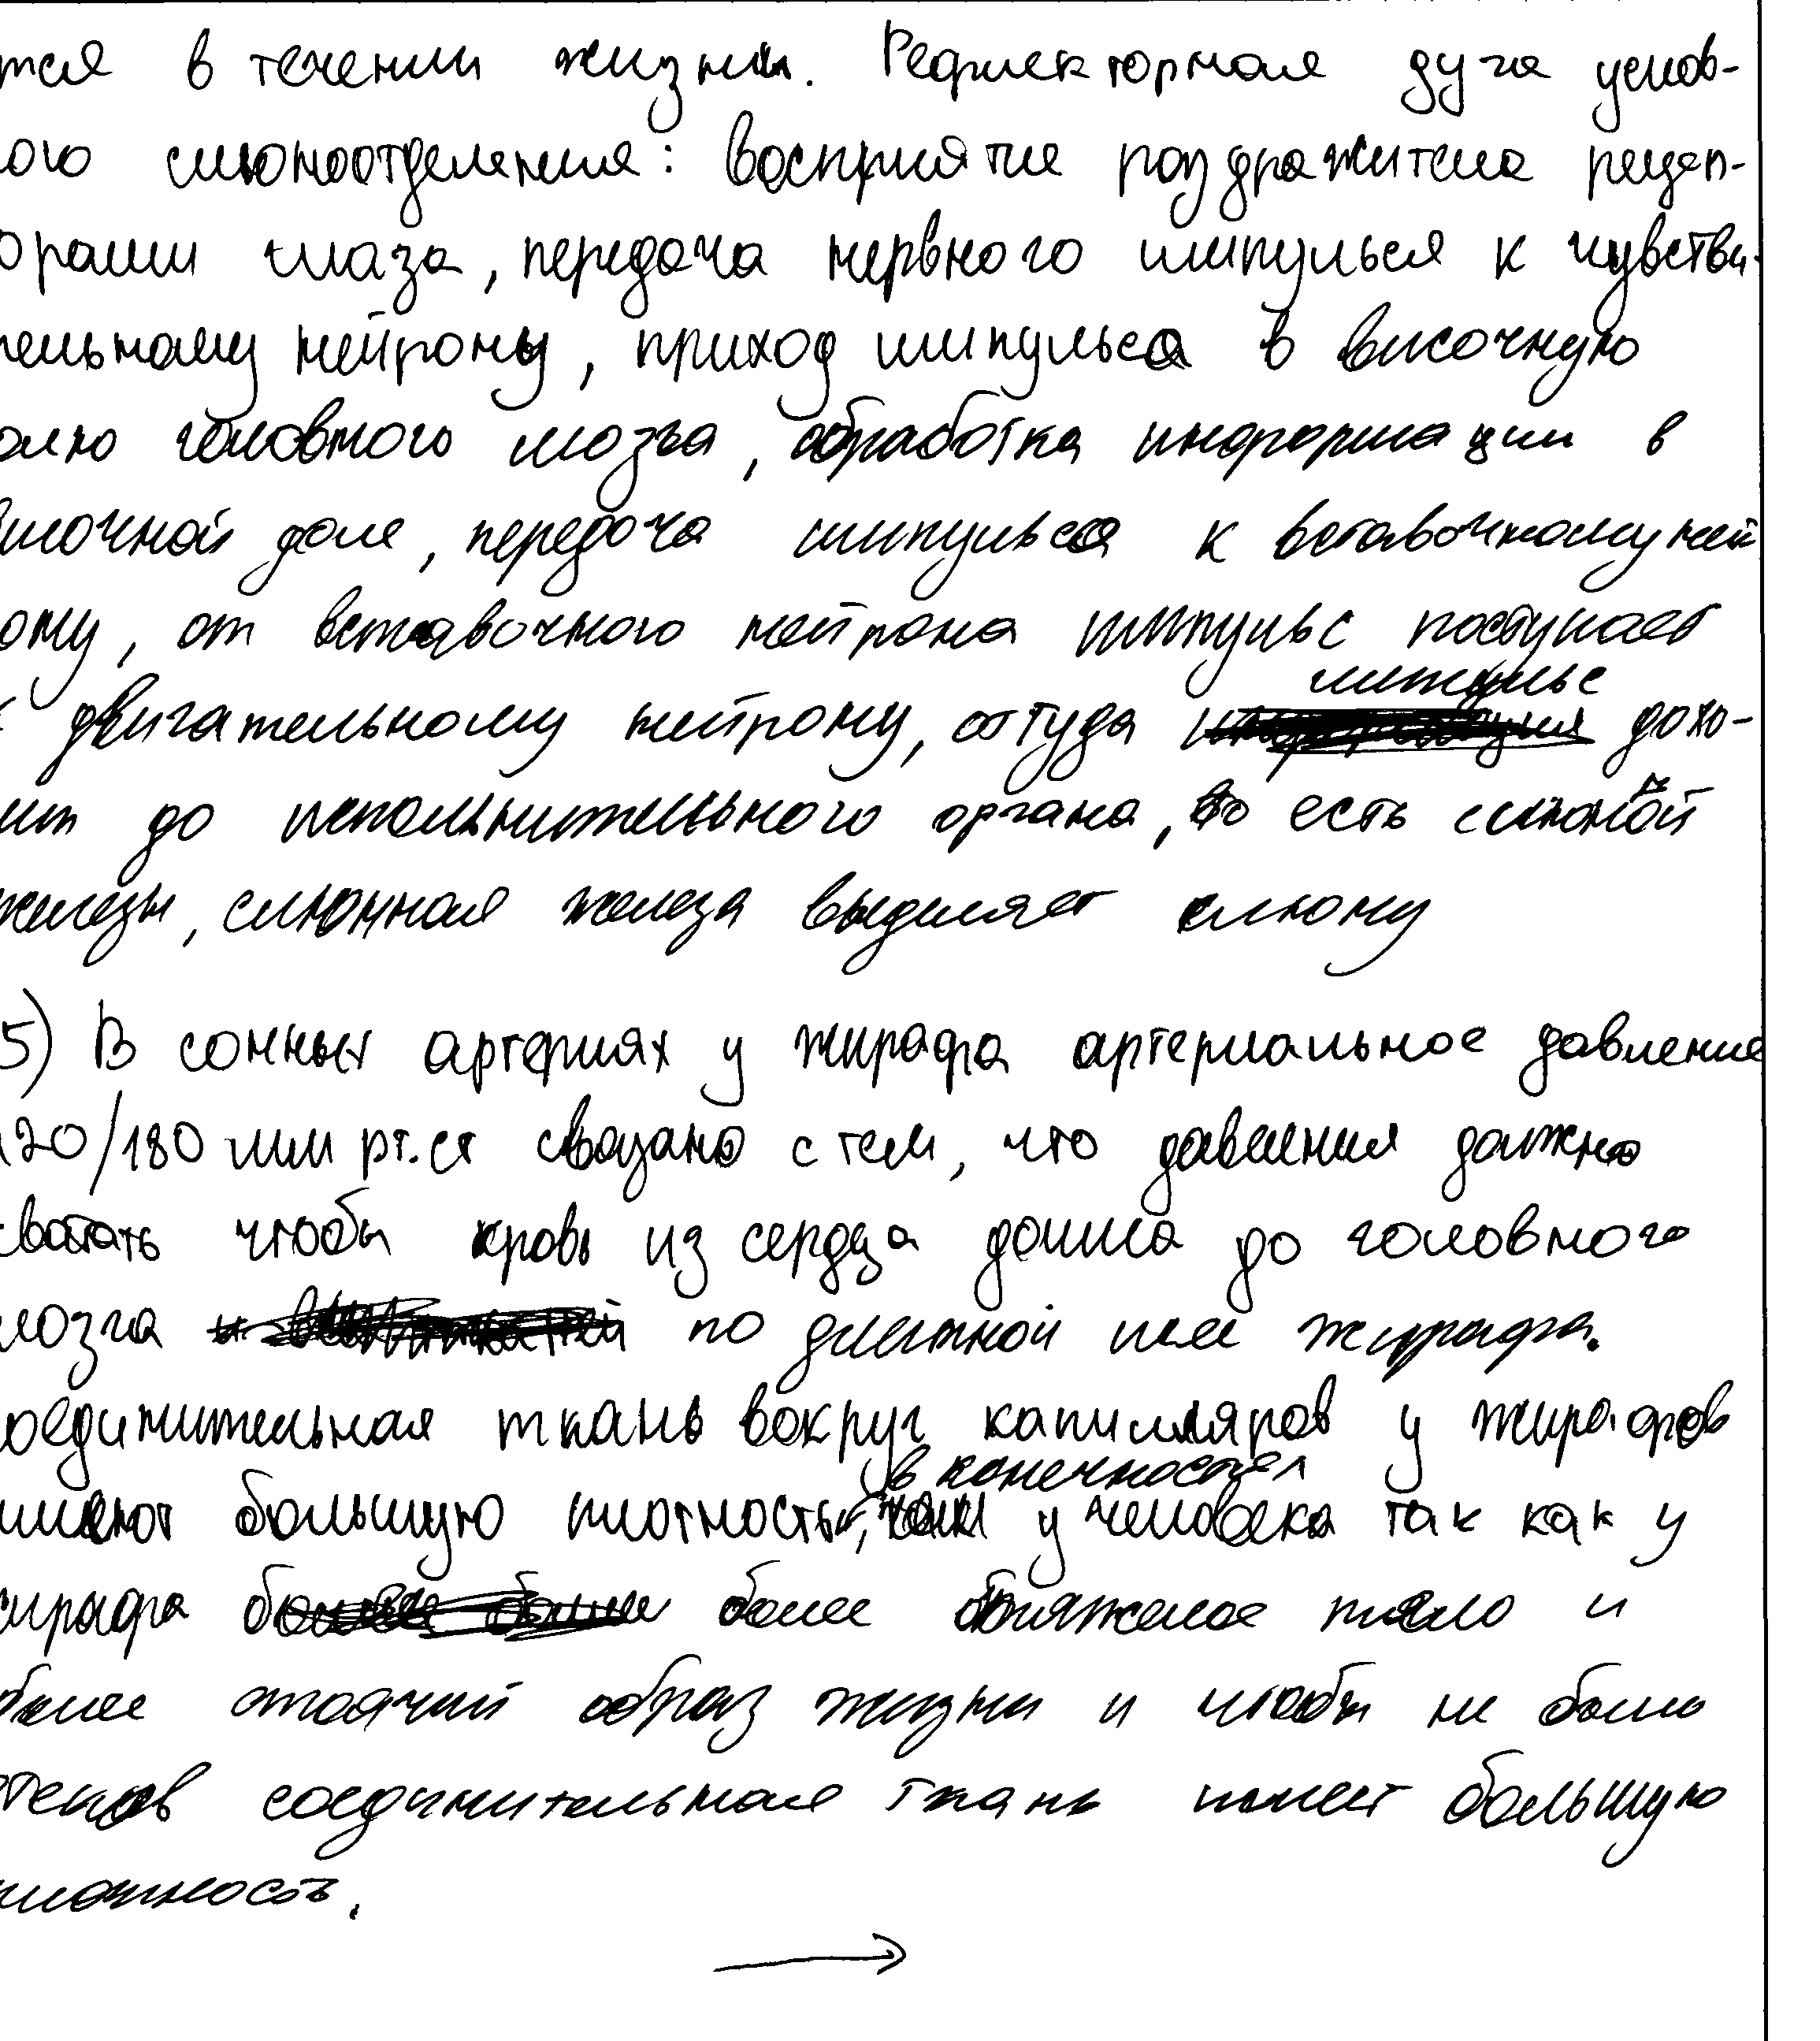 тся в течении жизни. Рефлекторная дуга услов-
ого слюноотделения: восприятие раздражителя рецеп-
орами глаза, передача нервного импульса к чувстви-
тельному нейрону, приход импульса в височную
олю головного мозга, обработка информации в
височной доле, передача импульса к вставочному ней
ому, от вставочного нейрона импульс поступает
импульс
к двигательному нейрону, оттуда дохо-
ит до исполнительного органа, то есть слюной
железы, слюнная железа выделяет слюну
5) В сонных артериях у жирафа артериальное давление
120/180 мм рт.ст связано с тем, что давления должно
хватать чтобы кровь из сердца дошла до головного
мозга по длинной шее жирафа.
соединительная ткань вокруг капилляров у жирафов
в конечностях
имеют большую плотность, чем у человека так как у
жирафа более тяжелое тело и
более стоячий образ жизни и чтобы не было
отеков соединительная ткань имеет большую
плотность.